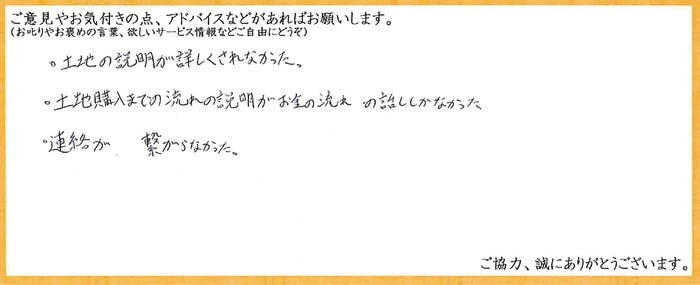 ご意見やお気付きの点、アドバイスなどがあればお願いします。
(お叱りやお褒めの言葉、欲しいサービス情報などご自由にどうぞ)
。土地の説明が詳しくされなかった。
。土地購入までの流れの説明がお金の流れ の話ししかなかった
。連絡が 繋がらなかった。
ご協力、誠にありがとうございます。